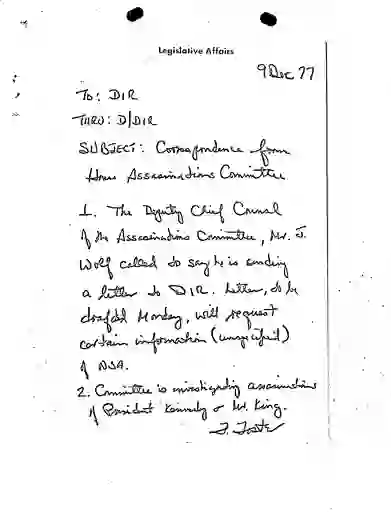 Legislative Affairs
9 Dec 77
To: DIR
THRU: D/DIR
SUBJECT: Correspondence from
House Assassinations Committee
1. The Deputy Chief Counsel
of the Assassinations Committee, Mr. J.
Wolf called to say he is sending
a letter to DIR. Letter, to be
drafted Monday, will request
certain information (unspecified)
of NSA.
2. Committee is investigating assassinations
of President Kennedy or Mr. King.
J. Foster